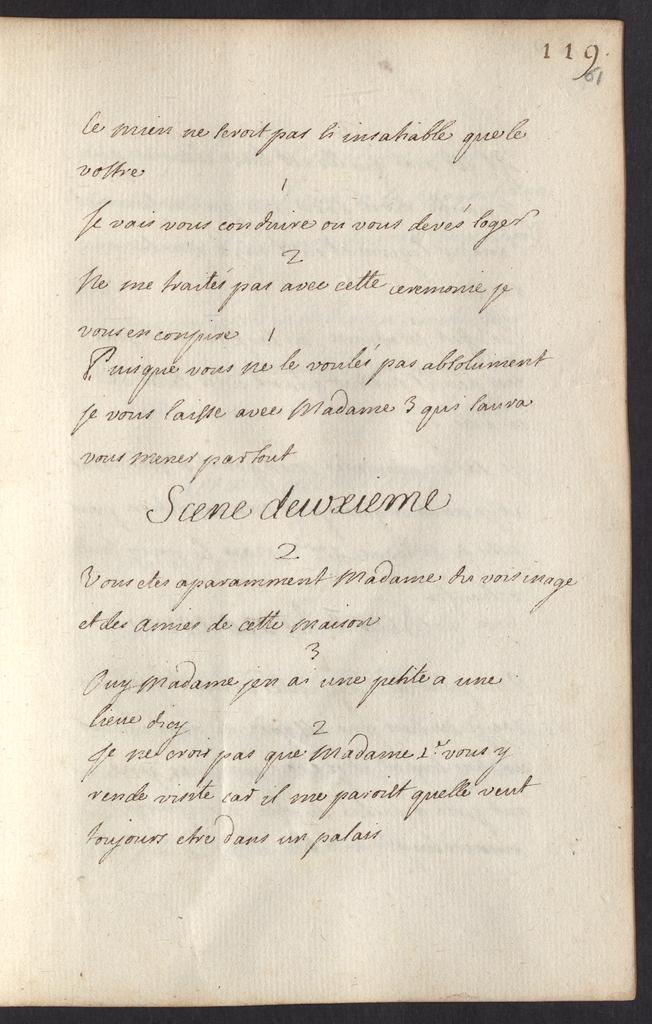 119.
61
Le mien ne seroit pas si insatiable que le
vostre
1
Je vais vous conduire ou vous devés loger
2
Ne me traités pas avec cette ceremonie je
vous en conjure 1
Puisque vous ne le voulés pas absolument
je vous laisse avec Madame 3 qui saura
vous mener partout
Scene deuxieme
2
Vous etes aparamment Madame du voisinage
et des amies de cette maison
3
Ouy Madame jen ai une petite a une
lieue dicy
2
Je ne crois pas que Madame 1re vous y
rende visite car il me paroist quelle veut
toujours etre dans un palais